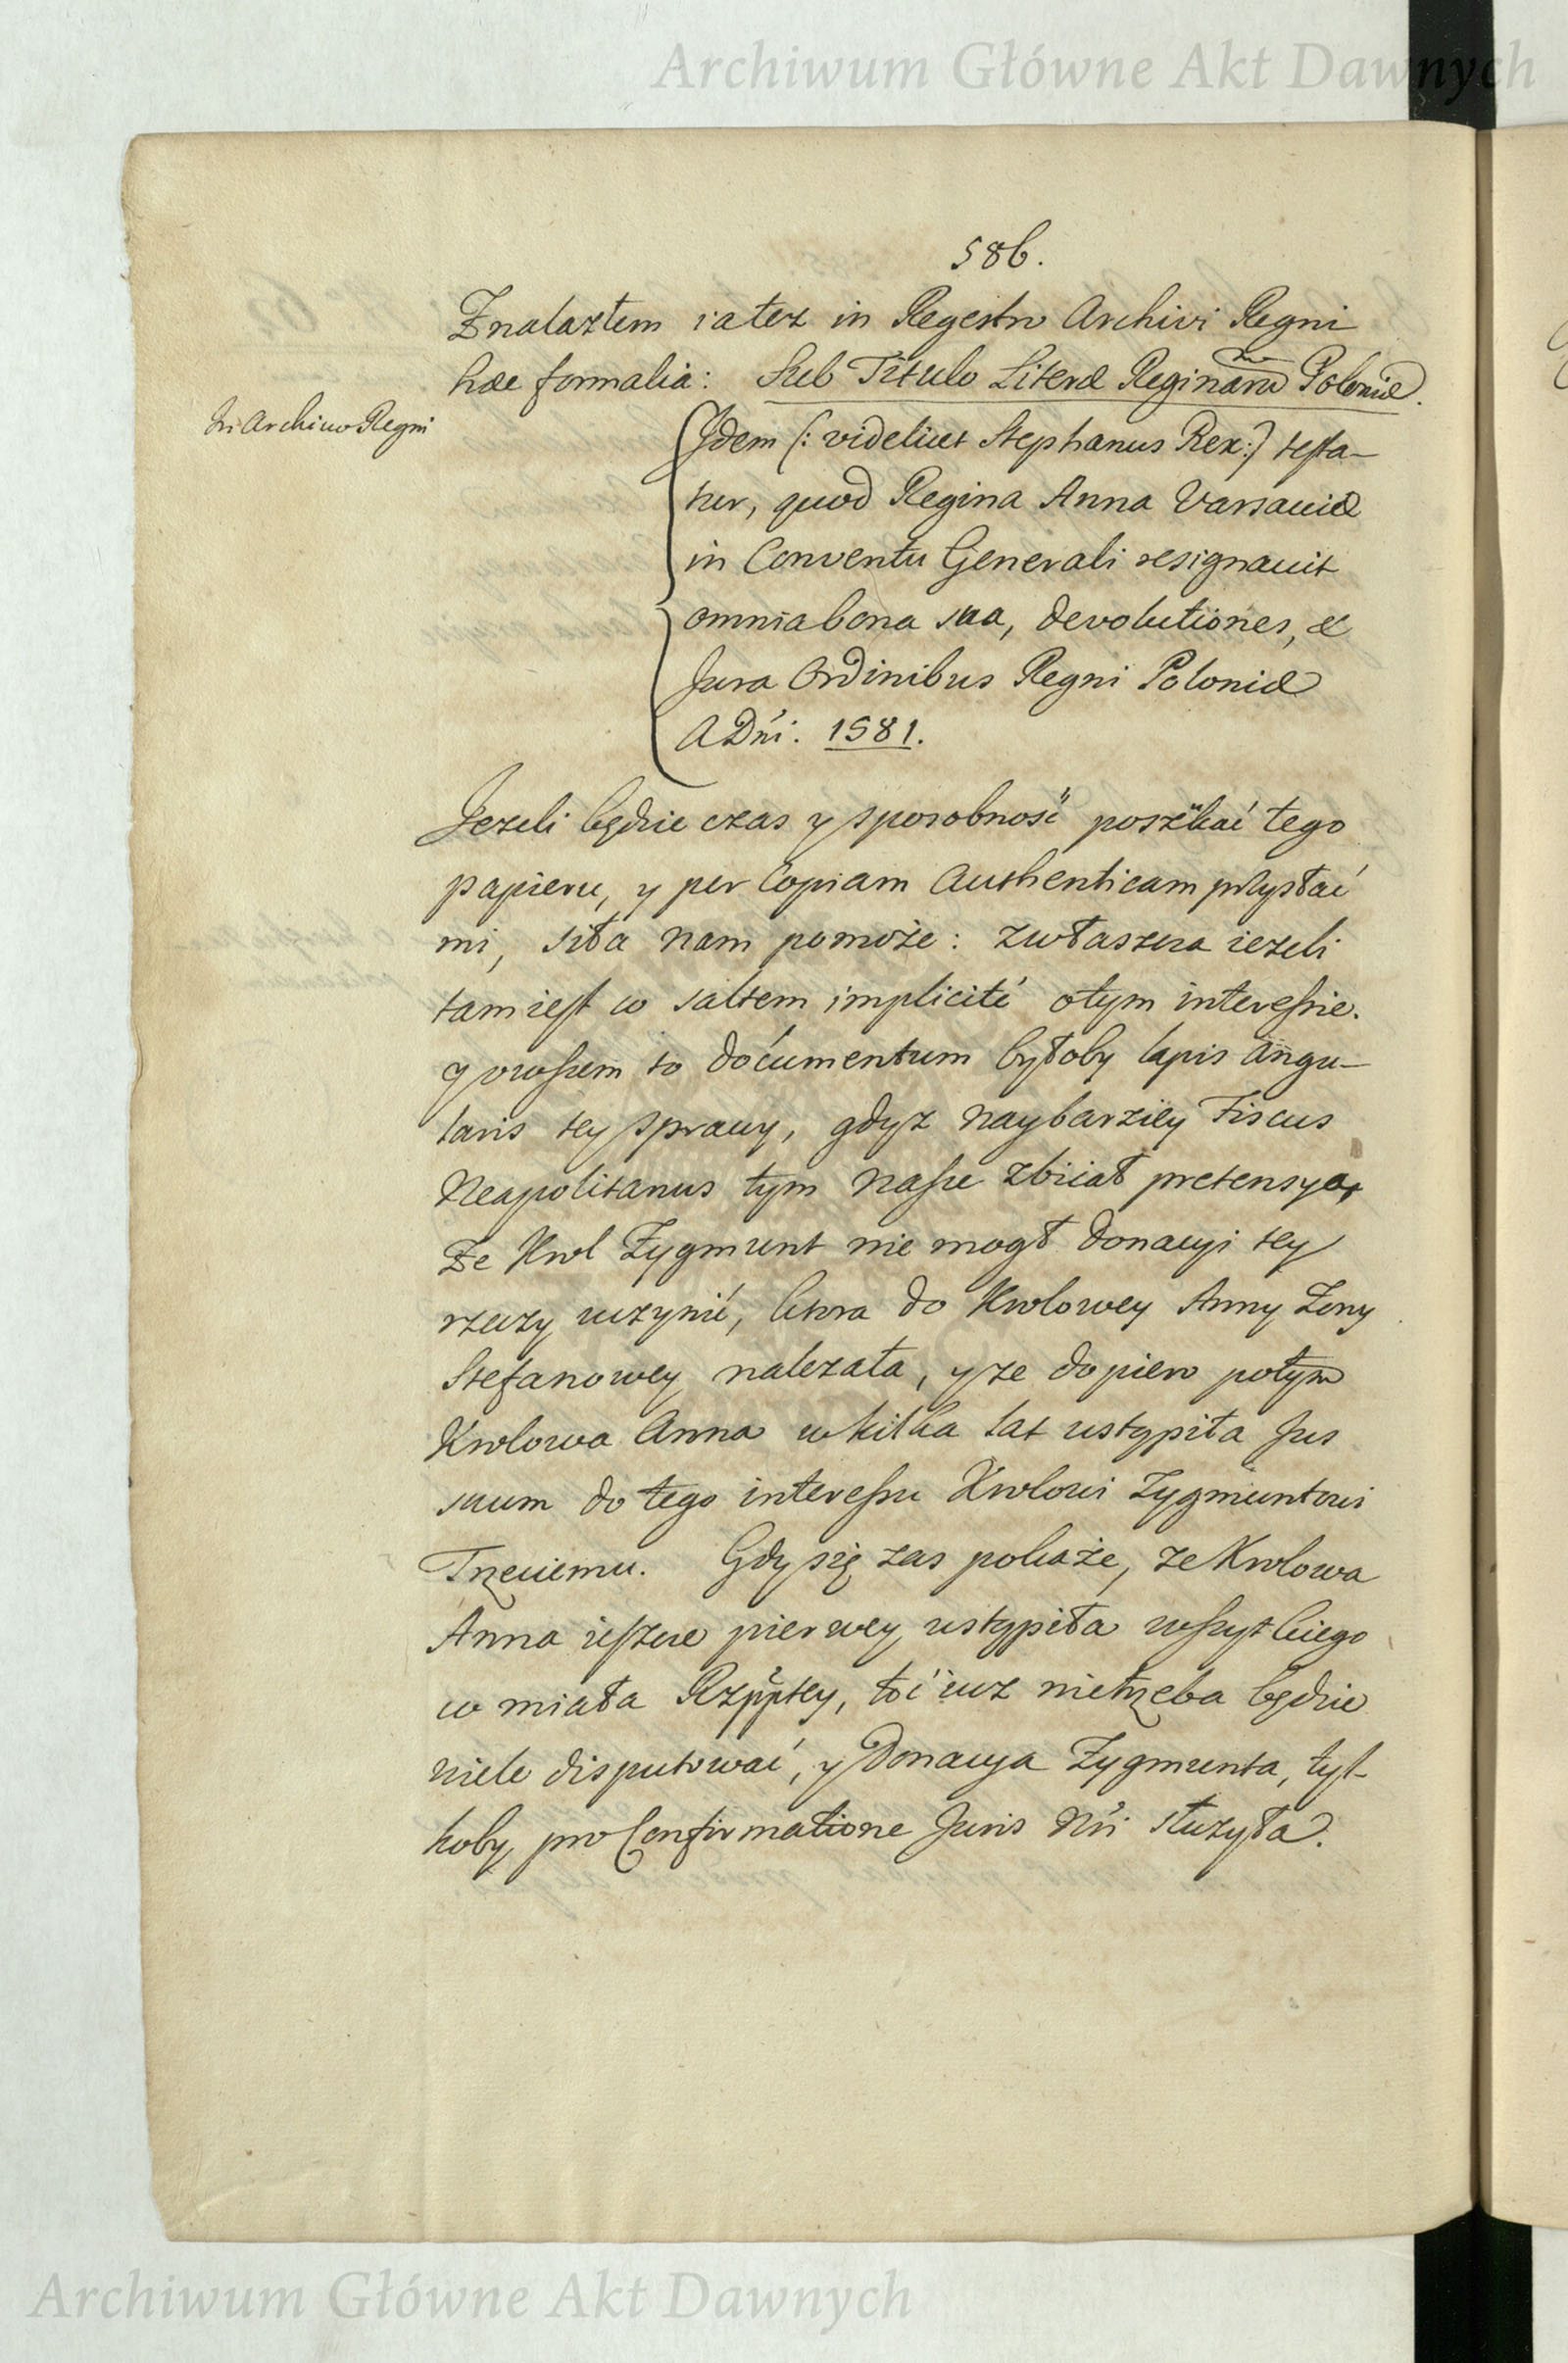 Archiwum Główne Akt Dawnych
586.
Znalazłem ia też in Regestro Archivi Regni
hæ formalia: Sub Titulo Literæ Reginarū Poloniæ.
In Archivo Regni
Idem (: videlicet Stephanus Rex:) testa-
tur, quod Regina Anna Varsaviæ
in Conventu Generali resignavit
omnia bona sua, devolutiones, &
Jura Ordinibus Regni Poloniæ
A Dńi: 1581.
Jezeli będzie czas y sposobność poszukać tego
papieru, y per Copiam Authenticam przysłać
mi, siła nam pomoże: zwłaszcza iezeli
tam iest co saltem implicité o tym interessie.
y owszem to documentum byłoby lapis angu-
laris tey sprawy, gdyz naybarziey Fiscus
Neapolitanus tym nasze zbiiał pretensye,
Ze Krol Zygmunt nie mogł donacyi tey
rzeczy uczynić, ktora do Krolowey Anny Zony
Stefanowey nalezała, y ze dopiero potym
Krolowa Anna w kilka lat ustąpiła Jus
suum do tego interessu Krolowi Zygmuntowi
Trzeciemu. Gdy się zas pokaże, ze Krolowa
Anna ieszcze pierwey ustąpiła wszytkiego
co miała Rzpptey, toć iuz nie trzeba będzie
wiele disputować, y Donacya Zygmunta, tyl-
koby pro Confirmatione Juris Nri służyła.
Archiwum Główne Akt Dawnych